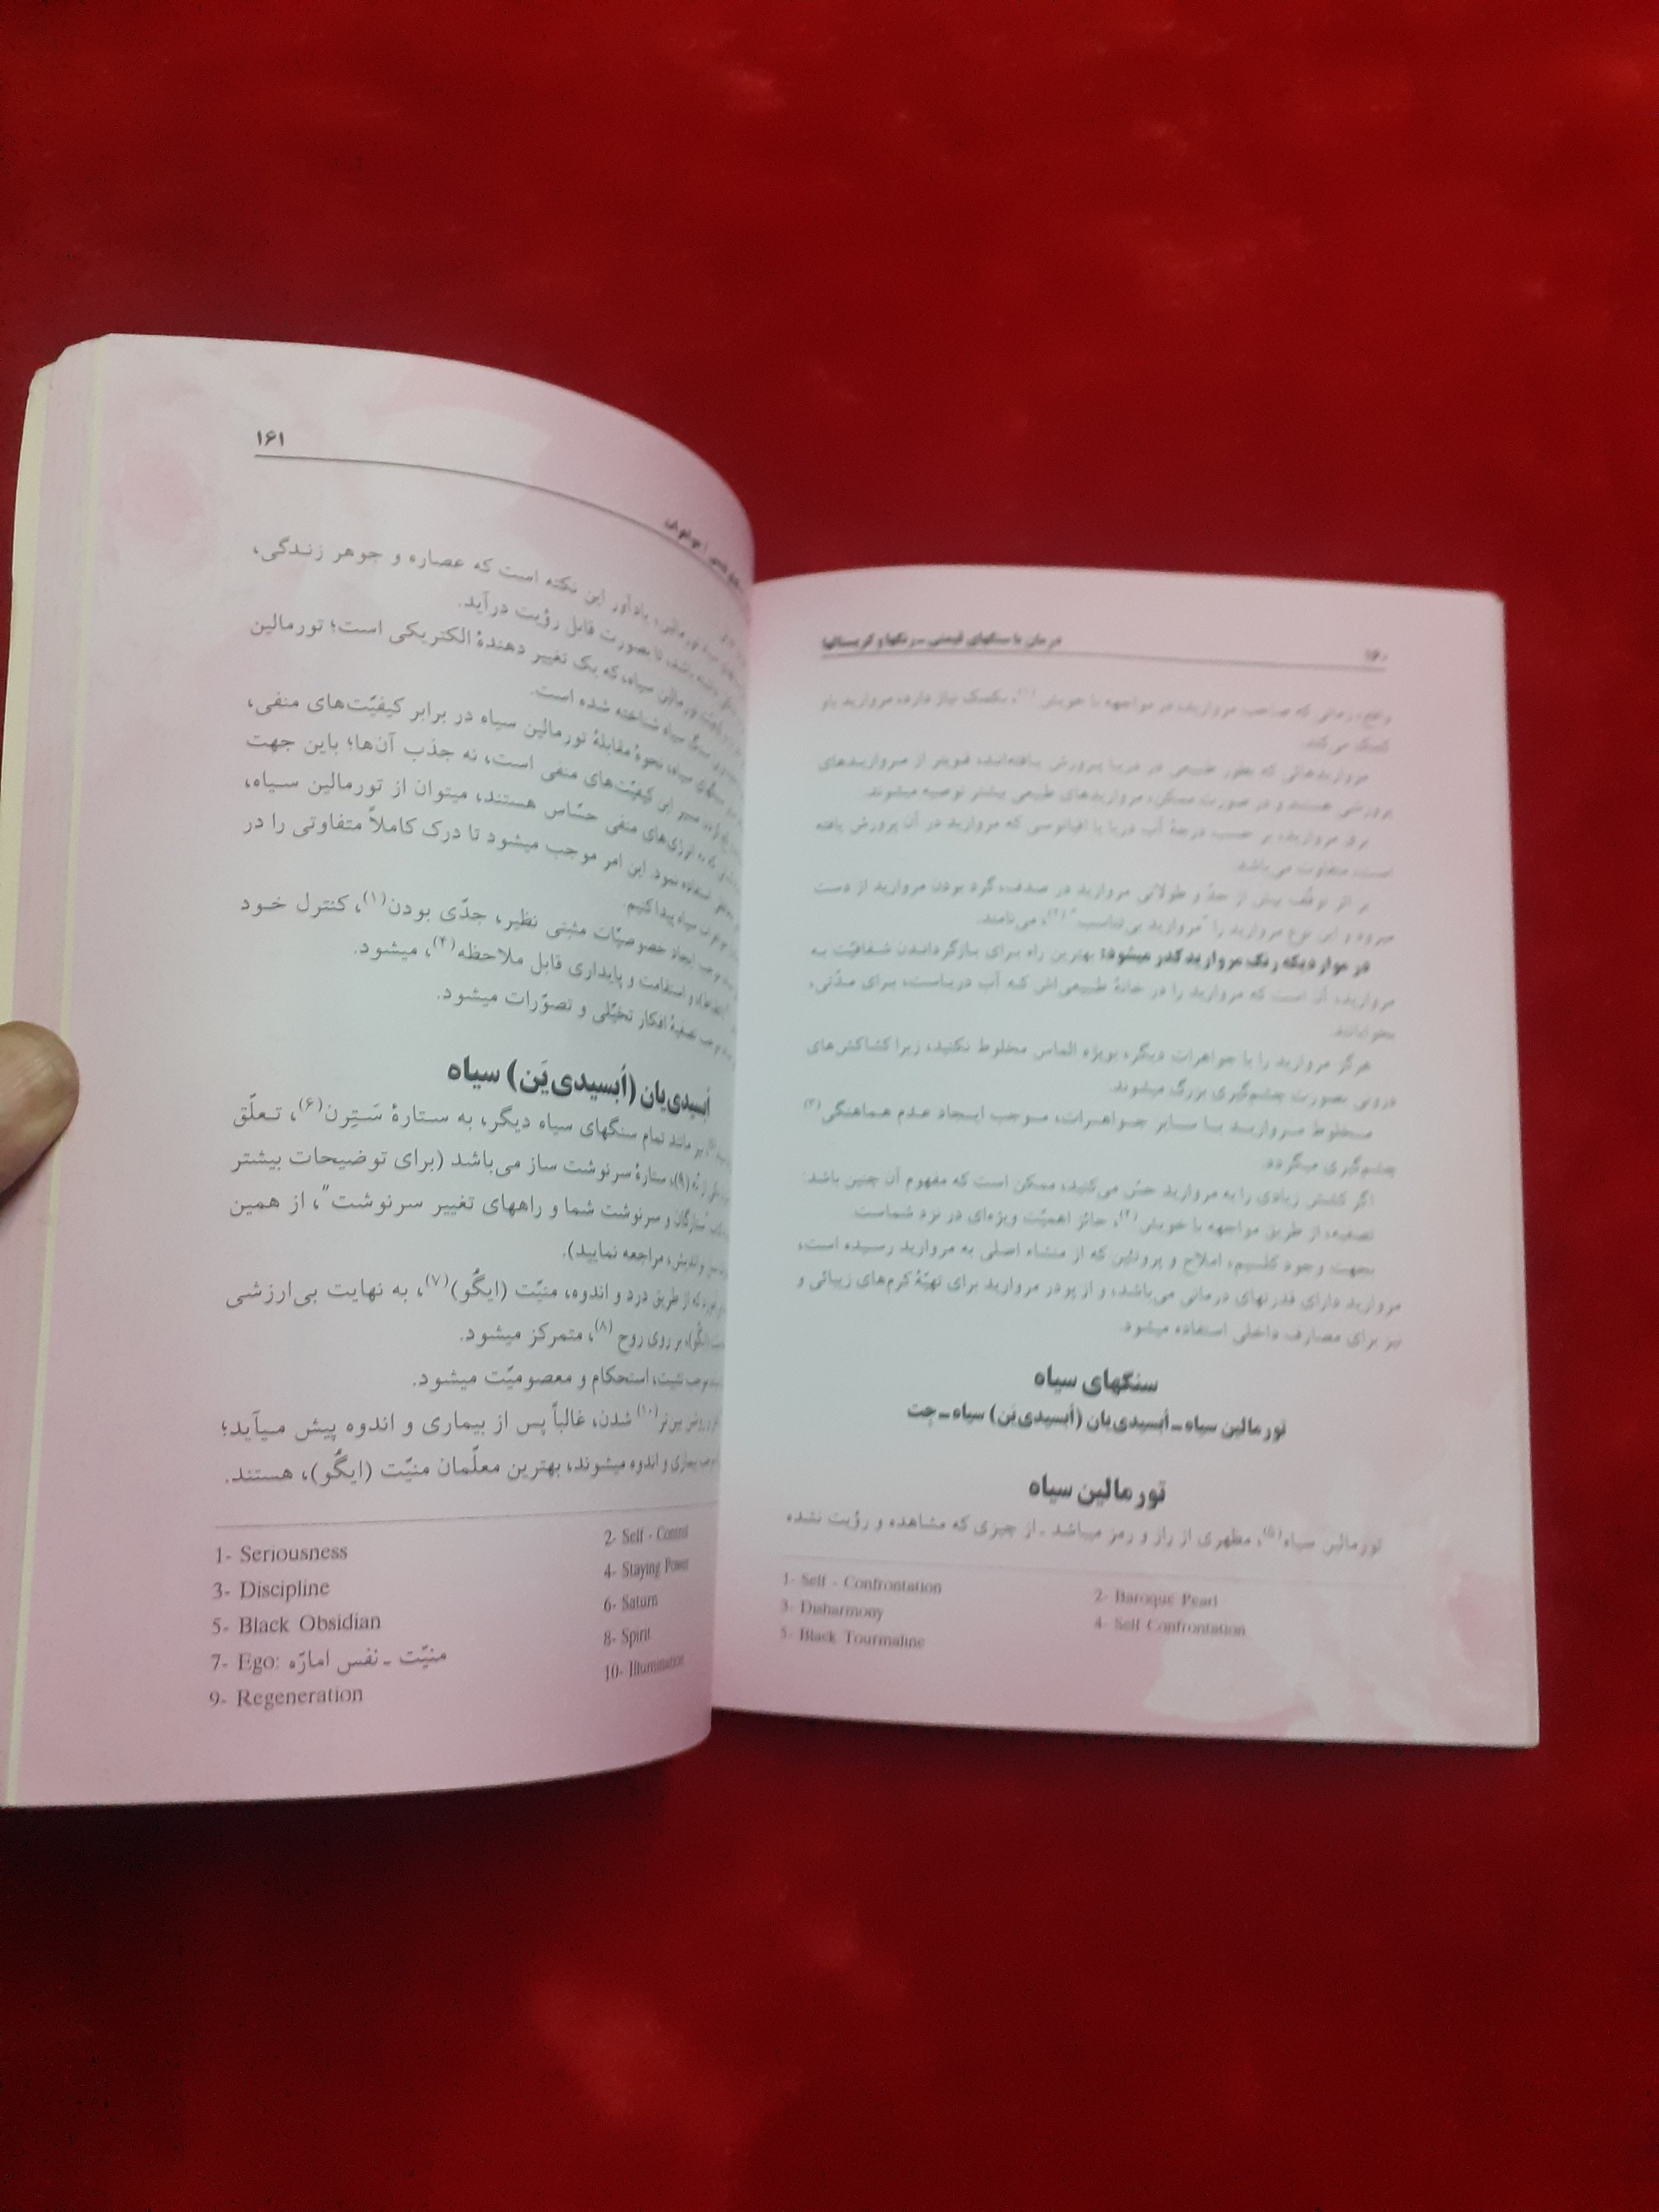 درمان با سنگهای قیمتی ـ رنگها و کریستالها
واقع، زمانی که صاحب مروارید، در مواجهه با خویش (۱)، بکمک نیاز دارد، مروارید باو
کمک می‌کند.
مرواریدهائی که بطور طبیعی در دریا پرورش یافته‌اند، قویتر از مرواریدهای
پرورشی هستند و در صورت ممکن، مرواریدهای طبیعی بیشتر توصیه میشوند.
برق مروارید، بر حسب درجهٔ آب دریا یا اقیانوسی که مروارید در آن پرورش یافته
است، متفاوت می‌باشد.
بر اثر توقّف بیش از حدّ و طولانی مروارید در صدف، گرد بودن مروارید از دست
میرود و این نوع مروارید را "مروارید بی‌تناسب" (۲)، می‌نامند.
در مواردیکه رنگ مروارید کدر میشود: بهترین راه برای بازگرداندن شفافیّت به
مروارید، آن است که مروارید را در خانهٔ طبیعی‌اش که آب دریاست، برای مدّتی،
بخوابانند.
هرگز مروارید را با جواهرات دیگر، بویژه الماس مخلوط نکنید، زیرا کشاکش‌های
درونی بصورت چشم‌گیری بزرگ میشوند.
مخلوط مروارید با سایر جواهرات، موجب ایجاد عدم هماهنگی (۳)
چشم‌گیری میگردد.
اگر کشش زیادی را به مروارید حسّ می‌کنید، ممکن است که مفهوم آن چنین باشد:
تصفیه، از طریق مواجهه با خویش (۴)، حائز اهمیّت ویژه‌ای در نزد شماست.
بجهت وجود کلسیم، املاح و پروتئین که از منشاء اصلی به مروارید رسیده است،
مروارید دارای قدرتهای درمانی می‌باشد، و از پودر مروارید برای تهیّهٔ کرم‌های زیبائی و
نیز برای مصارف داخلی استفاده میشود.
سنگهای سیاه
تورمالین سیاه ـ اُبسیدی‌یان (اُبسیدی‌یَن) سیاه ـ جِت
تورمالین سیاه
تورمالین سیاه (۵)، مظهری از راز و رمز میباشد ـ از چیزی که مشاهده و رؤیت نشده
1- Self - Confrontation
2- Baroque Pearl
3- Disharmony
4- Self Confrontation
5- Black Tourmaline
۱۶۱
یادآور این نکته است که عصاره و جوهر زندگی،
تا بصورت قابل رؤیت درآید.
تورمالین سیاه، که یک تغییر دهندهٔ الکتریکی است؛ تورمالین
سنگ سیاه شناخته شده است.
سنگهای سیاه، نحوهٔ مقابلهٔ تورمالین سیاه در برابر کیفیّت‌های منفی،
این کیفیّت‌های منفی است، نه جذب آن‌ها؛ باین جهت
که به انرژی‌های منفی حسّاس هستند، میتوان از تورمالین سیاه،
استفاده نمود. این امر موجب میشود تا درک کاملاً متفاوتی را در
سیاه پیدا کنیم.
موجب ایجاد خصوصیّات مثبتی نظیر، جدّی بودن (۱)، کنترل خود
و استقامت و پایداری قابل ملاحظه (۴)، میشود.
موجب تصفیهٔ افکار تخیّلی و تصوّرات میشود.
اُبسیدی‌یان (اُبسیدی‌یَن) سیاه
نیز مانند تمام سنگهای سیاه دیگر، به ستارهٔ سَتِرن (۶)، تعلّق
(۹)، ستارهٔ سرنوشت ساز می‌باشد (برای توضیحات بیشتر
ستارگان و سرنوشت شما و راههای تغییر سرنوشت"، از همین
مراجعه نمایید).
که از طریق درد و اندوه، منیّت (ایگُو) (۷)، به نهایت بی‌ارزشی
(ایگُو)، بر روی روح (۸)، متمرکز میشود.
موجب تثبیت، استحکام و معصومیّت میشود.
و روشن بین‌تر (۱۰) شدن، غالباً پس از بیماری و اندوه پیش میآید؛
بیماری و اندوه میشوند، بهترین معلّمان منیّت (ایگُو)، هستند.
1- Seriousness
2- Self - Control
3- Discipline
4- Staying Power
5- Black Obsidian
6- Saturn
7- Ego: منیّت ـ نفس امارّه
8- Spirit
9- Regeneration
10- Illumination